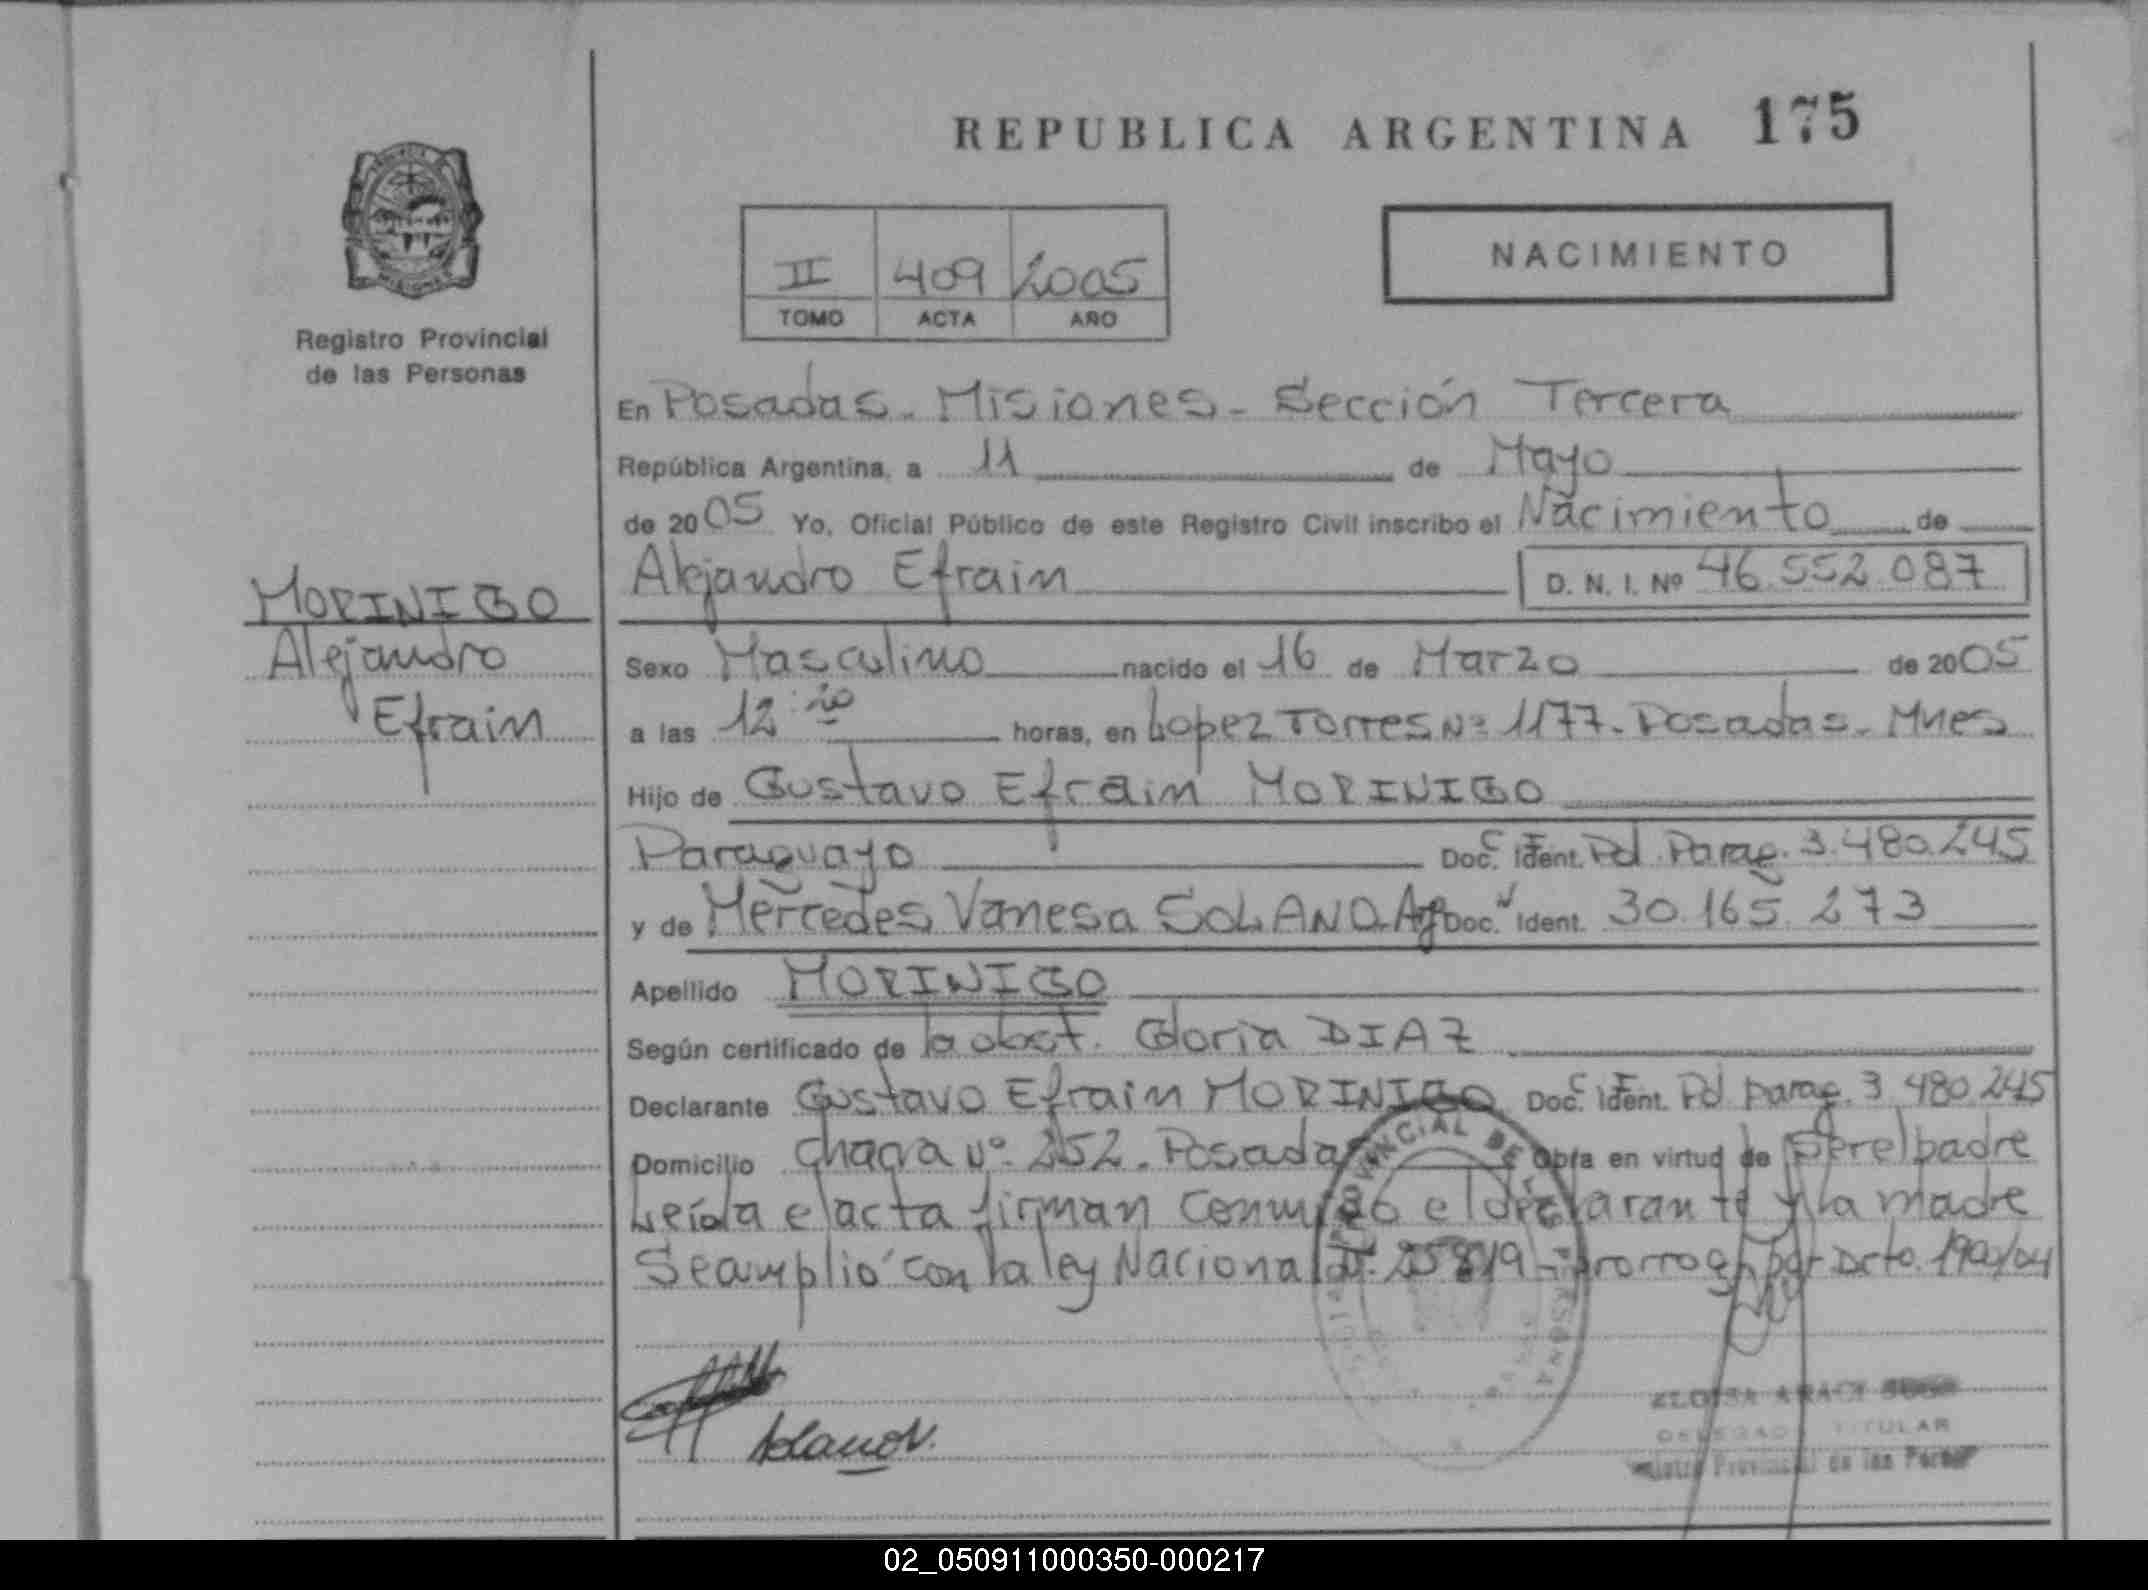 REPUBLICA ARGENTINA 175
II 409 2005
TOMO ACTA AÑO
NACIMIENTO
Registro Provincial
de las Personas
En Posadas - Misiones - Sección Tercera
República Argentina, a 11 de Mayo
de 2005 Yo, Oficial Público de este Registro Civil inscribo el Nacimiento de
Alejandro Efrain D. N. I. Nº 46.552.087
MORINIGO
Alejandro
Efrain
Sexo Masculino nacido el 16 de Marzo de 2005
a las 12:20 horas, en Lopez Torres Nº 1177 - Posadas - Mnes
Hijo de Gustavo Efrain MORINIGO
Paraguayo Doc. Ident. Pd Parag. 3.480.245
y de Mercedes Vanesa SOLANO Doc. Ident. 30.165.273
Apellido MORINIGO
Según certificado de la obst. Gloria DIAZ
Declarante Gustavo Efrain MORINIGO Doc. Ident. Pd parag. 3.480.245
Domicilio chacra Nº 252 - Posadas Obra en virtud de ser el padre
Leída el acta firman conmigo el declarante y la madre
Se amplió con la ley Nacional Nº 25819 - prorrog. por Dcto. 190/04
Solano V.
TITULAR
Provincial de las
02_050911000350-000217